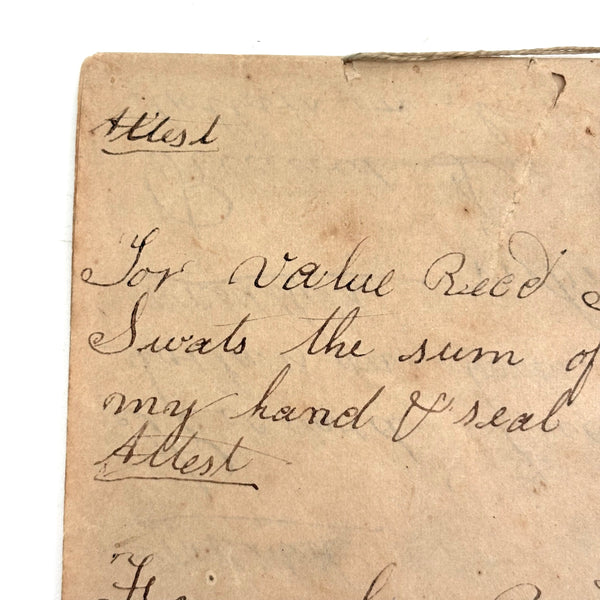 Attest
For value Recd
Swats the sum of
my hand & seal
Attest